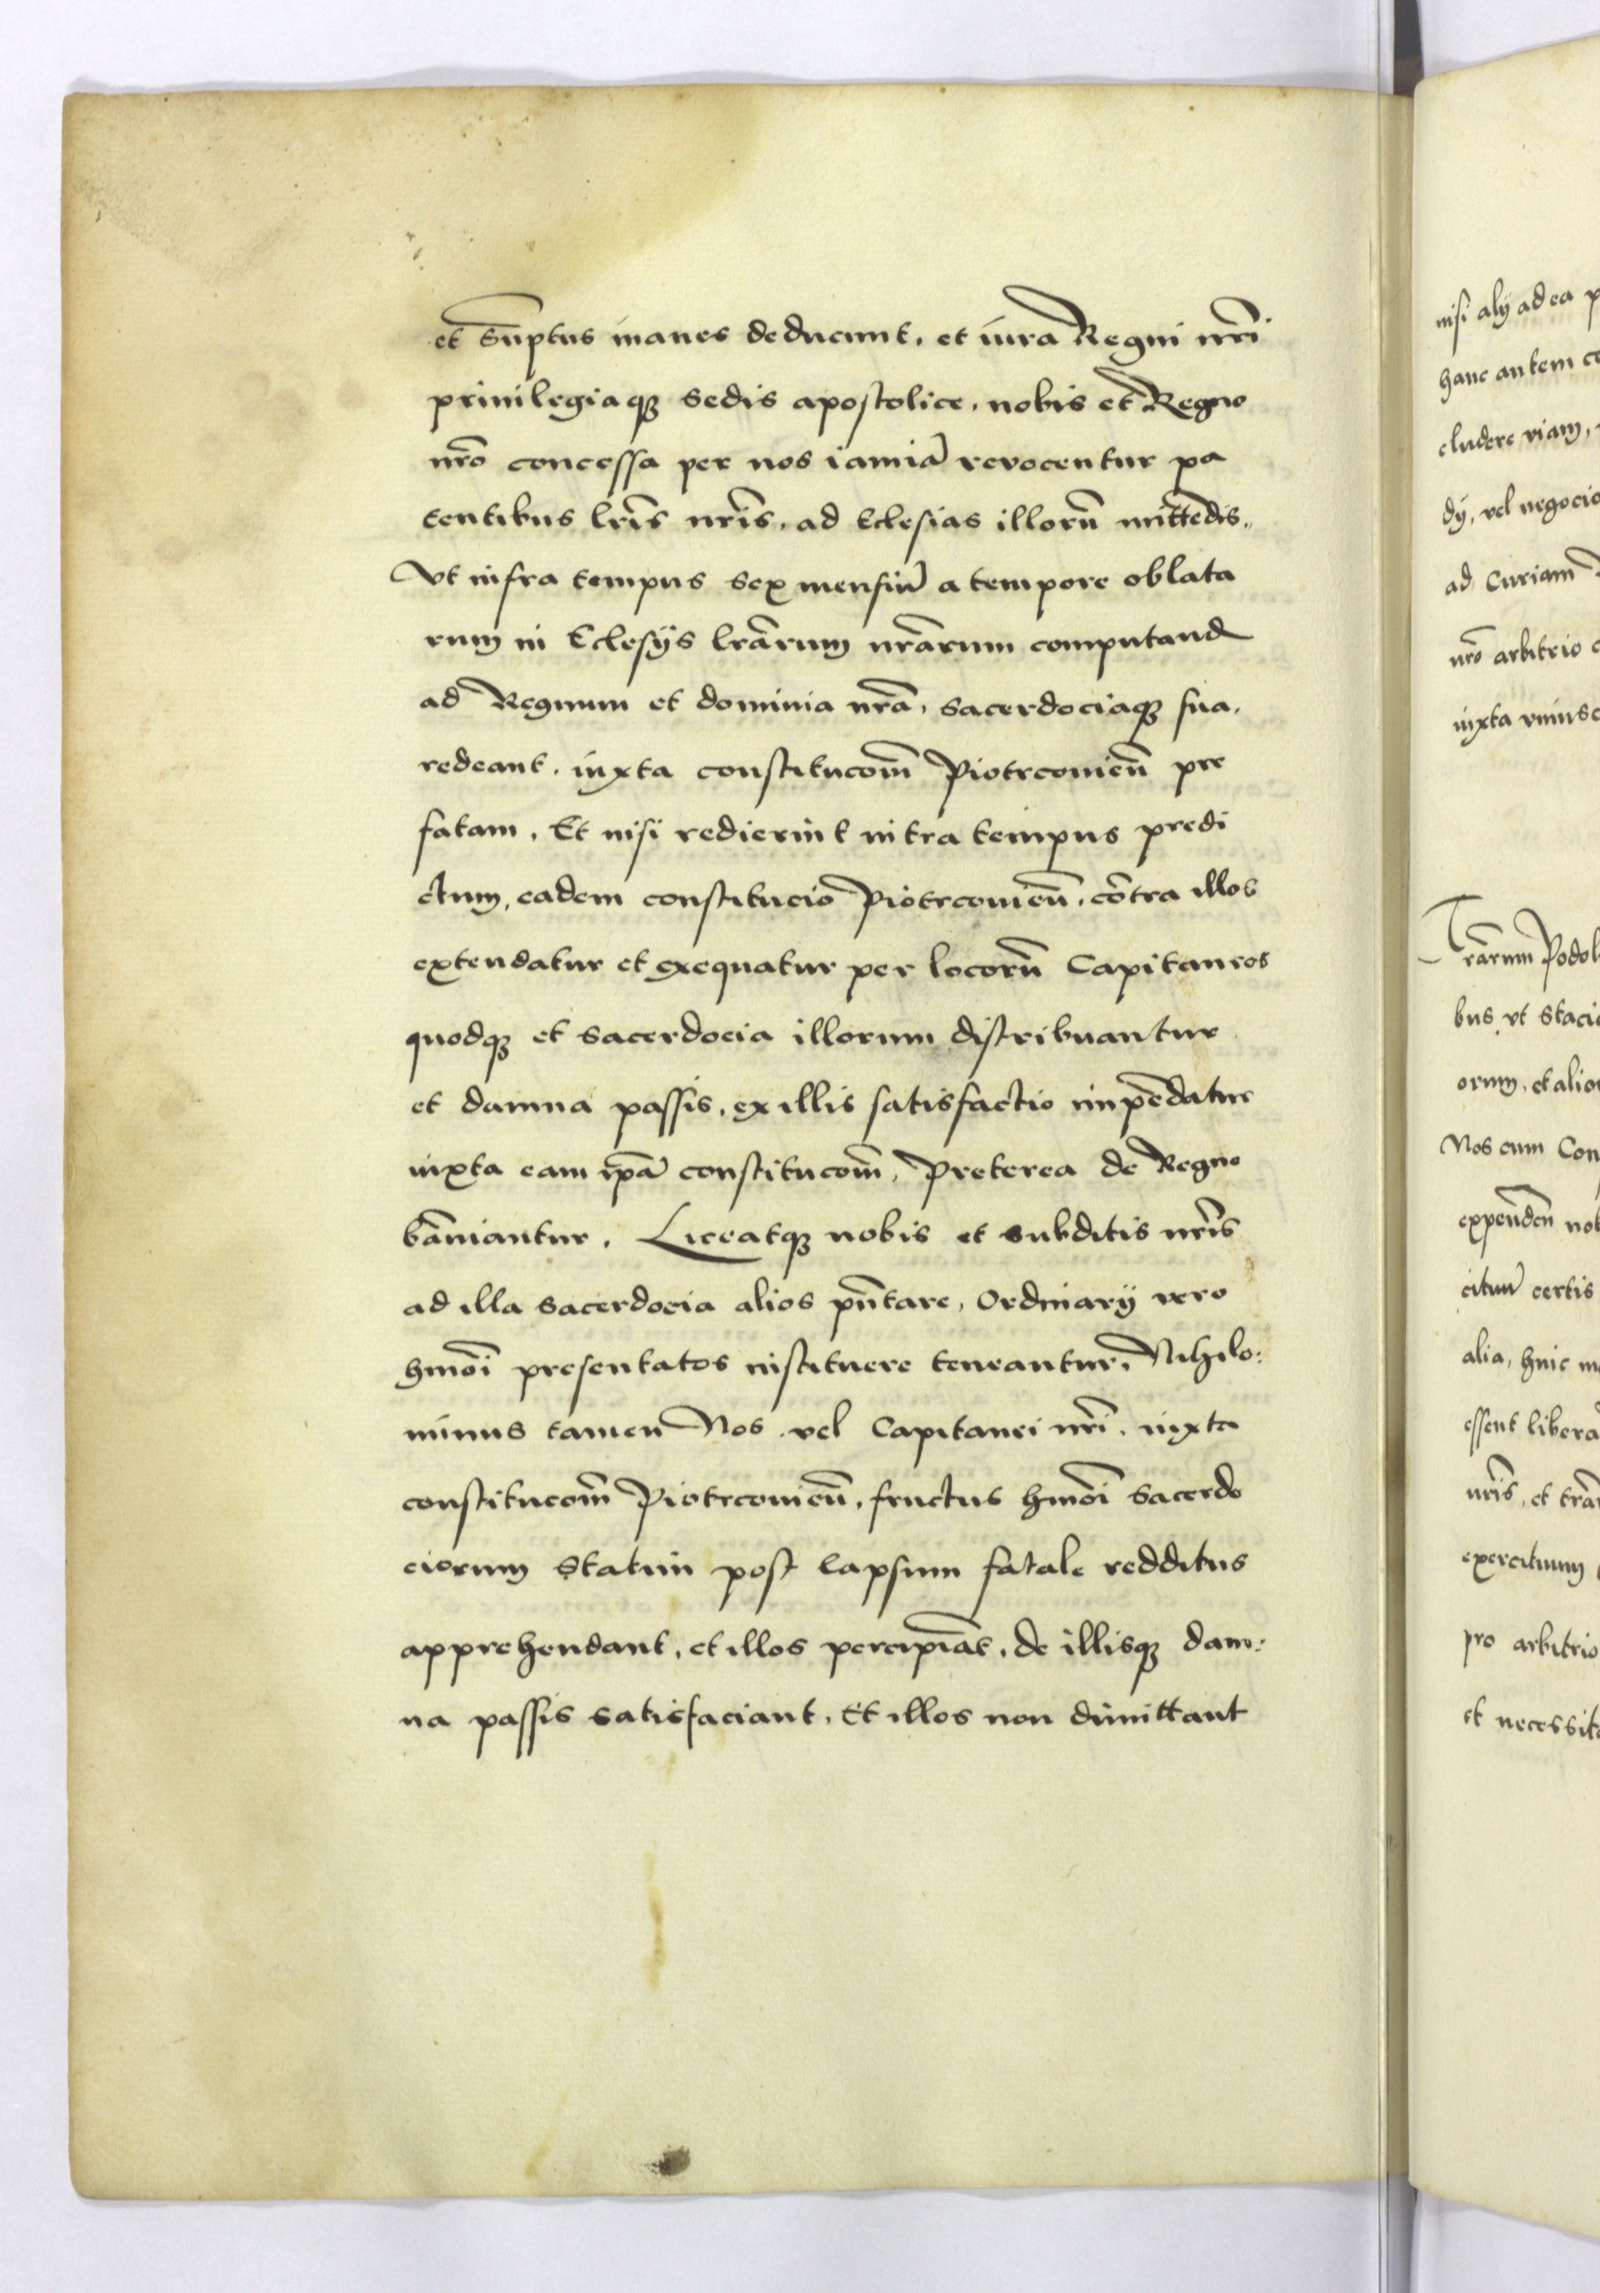 et su̅ptus inanes deducunt. et iura Regni nr̅i
priuilegiaq; sedis apostolice. nobis et Regno
nr̅o concessa per nos iamia̅ revocentur pa
tentibus lr̅is nr̅is. ad Eclesias illoru̅ mitte̅dis.
Vt infra tempus sex mensiu̅ a tempore oblata
rum in Eclesijs lr̅arum nr̅arum computand
ad Regnum et dominia nr̅a. sacerdociaq; sua.
redeant. iuxta constituco̅m Piotrconien̅ pre
fatam. Et nisi redierint intra tempus predi
ctum, eadem constitucio Piotrconien̅. co̅tra illos
extendatur et exequatur per locoru̅ Capitaneos
quodq; et sacerdocia illorum distribuantur
et damna passis. ex illis satisfactio impe̅datur
iuxta eam ip̅a̅ constituco̅m. Preterea de Regno
ba̅niantur. Liceatq; nobis et subditis nr̅is
ad illa sacerdocia alios pn̅tare, Ordinarij vero
hmo̅i presentatos instituere teneantur. Nihilo:
minus tamen Nos vel Capitanei nr̅i. iuxta
constituco̅m Piotrconien̅. fructus hmo̅i sacerdo
ciorum statim post lapsum fatale redditus
apprehendant. et illos percipia̅t. de illisq; dam:
na passis satisfaciant. Et illos non dimittant
nisi alij ad ea p
hanc autem co
cludere viam,
dij, vel negocio
ad Curiam
nr̅o arbitrio c
iuxta vniusc
Tr̅arum Podol
bus vt stacio
orum. et alior
Nos cum Con
expenden̅ nob
citur̅ certis
alia, huic m
essent libera
nr̅is, et tr̅ar
exercituum
pro arbitrio
et necessita